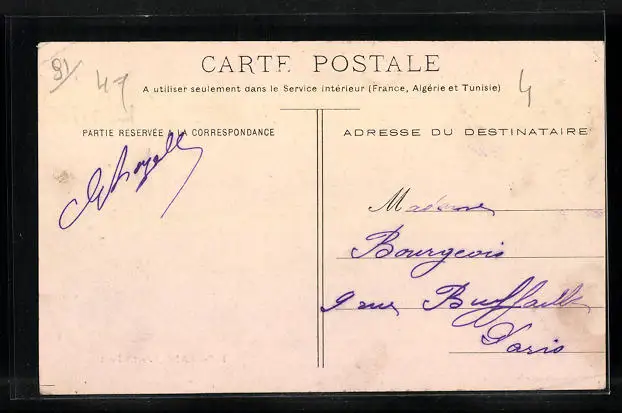 91
47
4
CARTE POSTALE
A utiliser seulement dans le Service intérieur (France, Algérie et Tunisie)
PARTIE RESERVÉE A LA CORRESPONDANCE
ADRESSE DU DESTINATAIRE
Madame
Bourgeois
9 rue Buffault
Paris